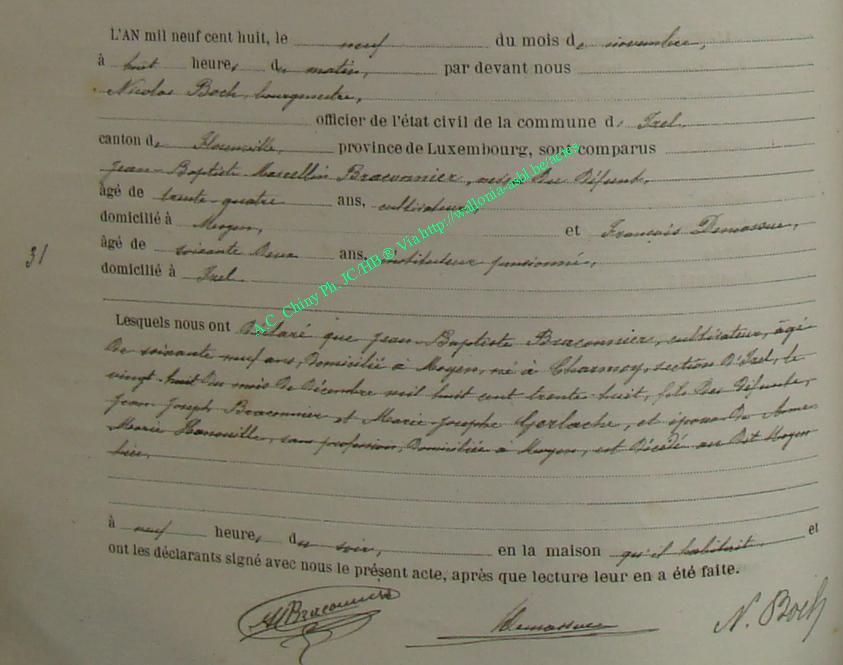 L'AN mil neuf cent huit, le neuf du mois de novembre,
à huit heures du matin, par devant nous
Nicolas Boch, bourgmestre,
officier de l'état civil de la commune d' Izel
canton de Florenville, province de Luxembourg, sont comparus
Jean-Baptiste Marcellin Braconnier, du Défunt,
âgé de trente-quatre ans, cultivateur,
domicilié à Moyen, et François Demasseur,
31 âgé de soixante deux ans, instituteur pensionné,
domicilié à Izel
A.C. Chiny Ph. JC/HB ® Via http://wallonia-asbl.be/actes
Lesquels nous ont Déclaré que Jean-Baptiste Braconnier, cultivateur, âgé
De soixante neuf ans, Domicilié à Moyen, né à Charmoy, section D'Izel, le
vingt huit Du mois De Décembre mil huit cent trente huit, fils Des Défunts,
Jean-Joseph Braconnier et Marie-Josephe Gerlache, et époux De Anne
Marie Hanouille, sans profession, Domiciliée à Moyen, est Décédé au Dit Moyen
hier,
à neuf heures du soir, en la maison qu'il habitait et
ont les déclarants signé avec nous le présent acte, après que lecture leur en a été faite.
Braconnier Demasseur N. Boch